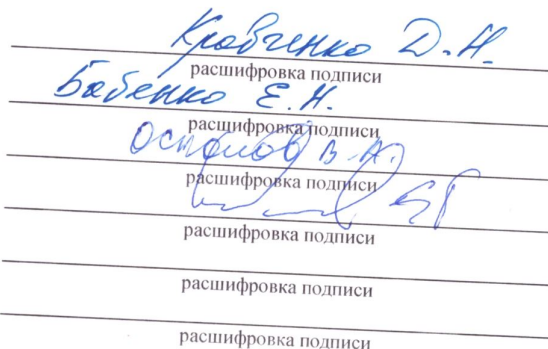 Кравченко Д.Н.
расшифровка подписи
Бабенко Е.Н.
расшифровка подписи
В.А.
расшифровка подписи
расшифровка подписи
расшифровка подписи
расшифровка подписи